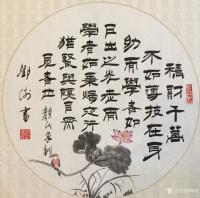 積財千萬
不如薄技在身
幼而學者如
日出之光老而
學者如秉燭夜行
猶賢與瞑目無
見者也 顏氏家訓